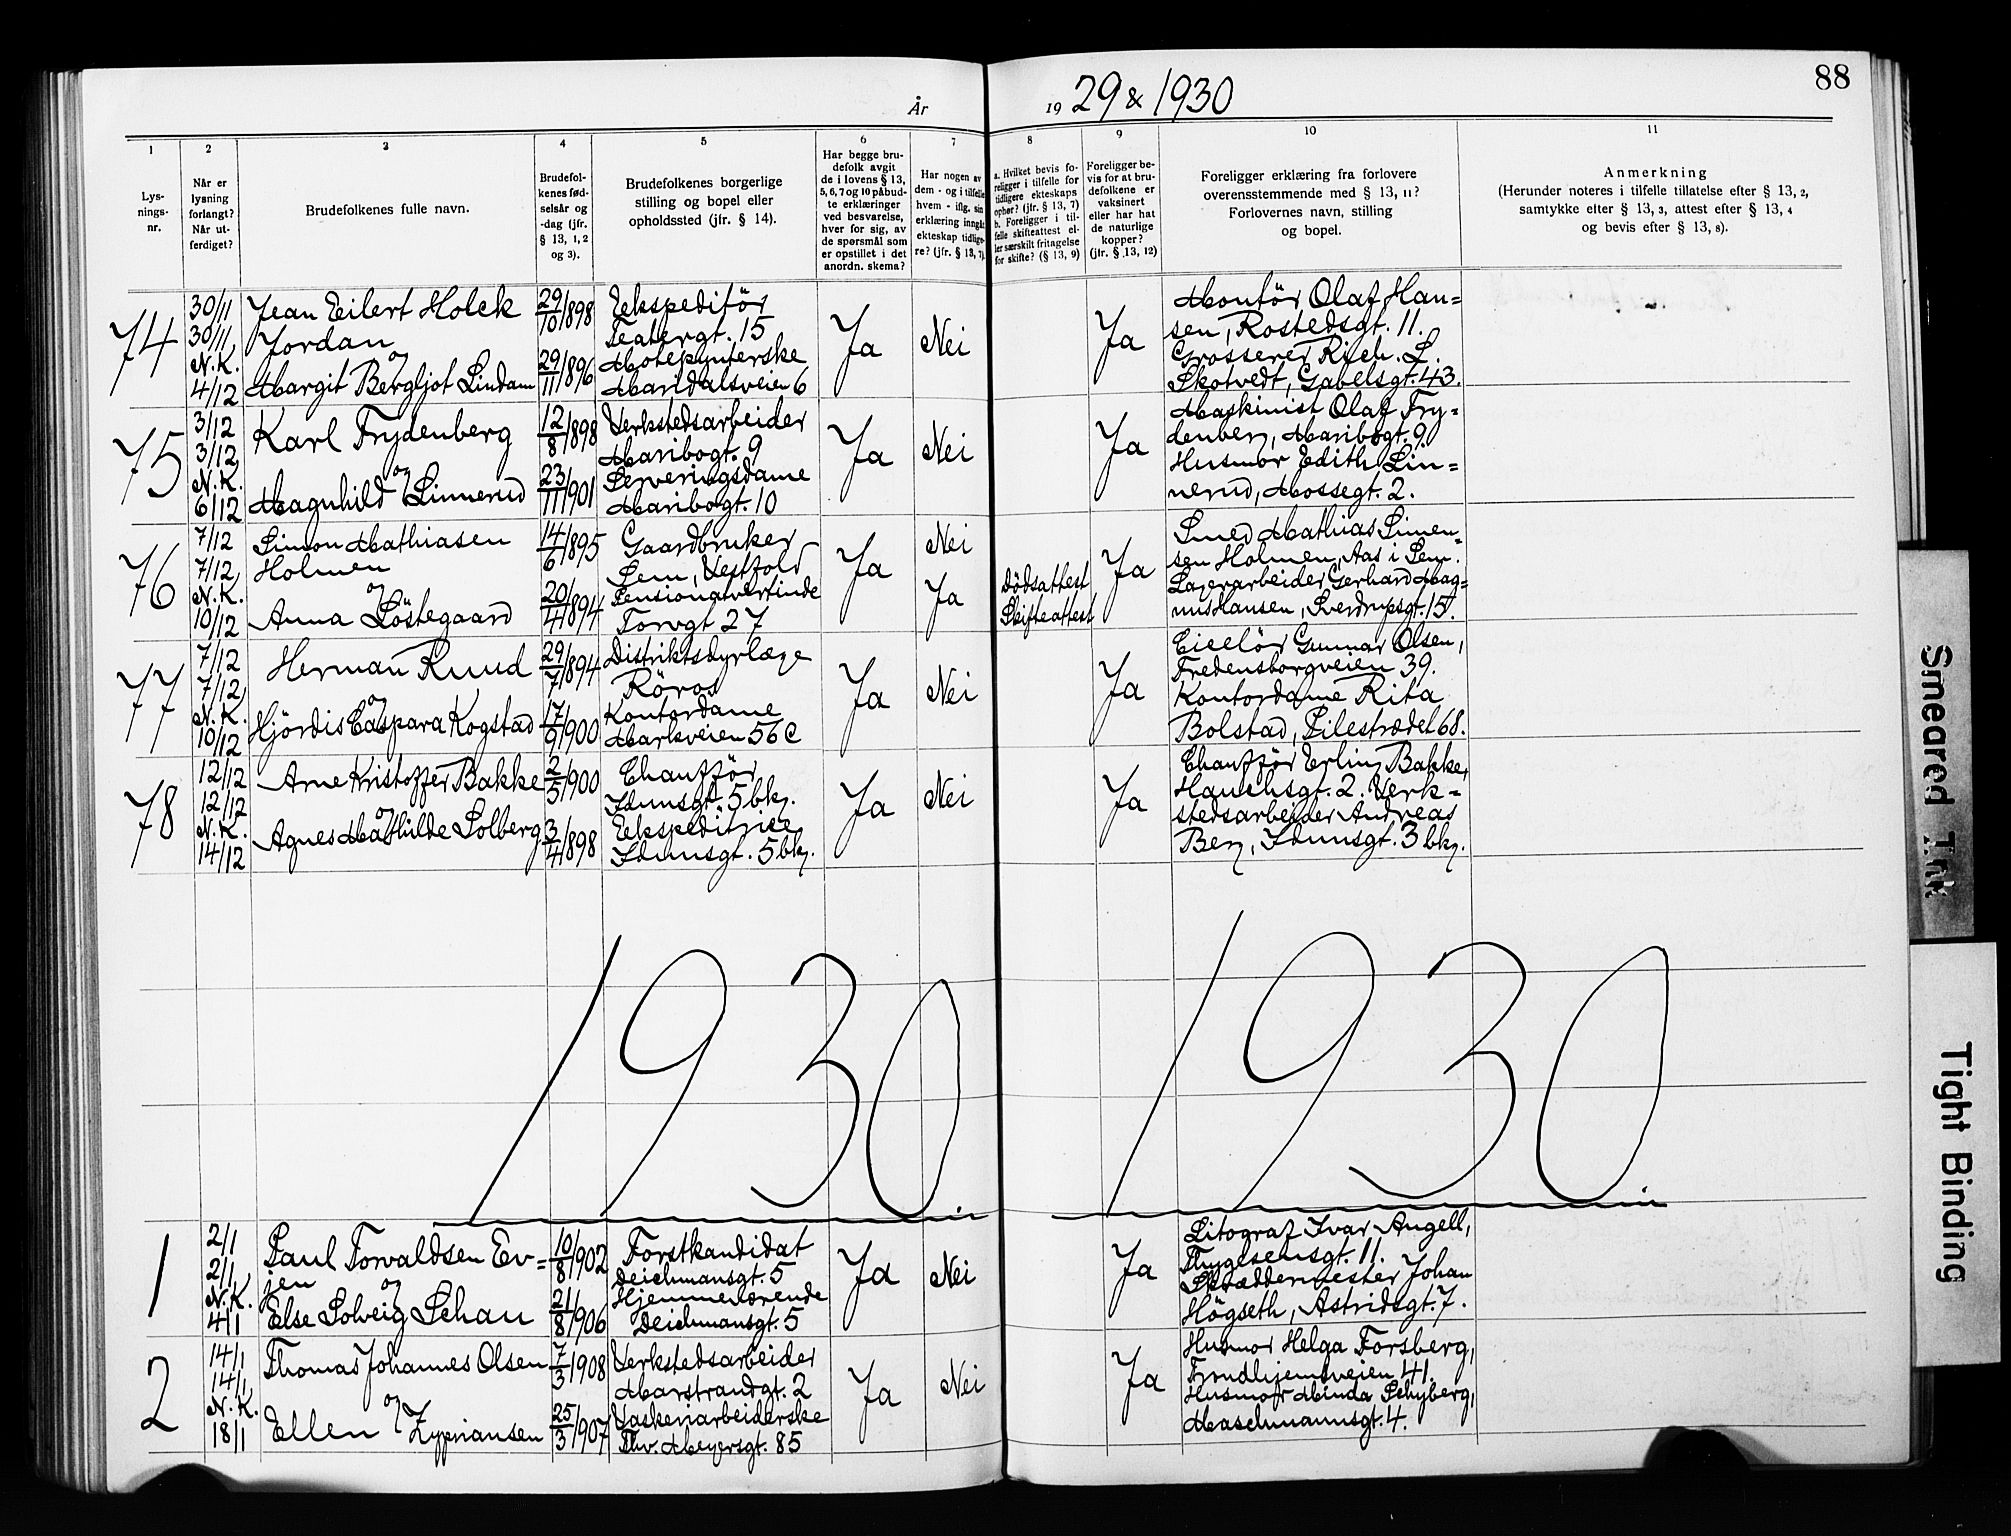 88
År 1929 & 1930
1
2
3
4
5
6
7
8
9
10
11
Lys-
nings-
nr.
Når er
lysning
forlangt?
Når ut-
ferdiget?
Brudefolkenes fulle navn.
Brudefol-
kenes fød-
selsår og
-dag (jfr.
§ 13, 1, 2
og 3).
Brudefolkenes borgerlige
stilling og bopel eller
opholdssted (jfr. § 14).
Har begge bru-
defolk avgit
de i lovens § 13,
5, 6, 7 og 10 påbud-
te erklæringer
ved besvarelse,
hver for sig, av
de spørsmål som
er opstillet i det
anordn. skema?
Har nogen av
dem - og i tilfelle
hvem - iflg. sin
erklæring inngått
ekteskap tidlige-
re? (jfr. § 13, 7).
a. Hvilket bevis fo-
religger i tilfelle for
tidligere ekteskaps
ophør? (jfr. § 13, 7)
b. Foreligger i til-
felle skifteattest el-
ler særskilt fritagelse
for skifte? (§ 13, 9)
Foreligger be-
vis for at bru-
defolkene er
vaksinert
eller har hat
de naturlige
kopper?
(jfr. § 13, 12)
Foreligger erklæring fra forlovere
overensstemmende med § 13, 11?
Forlovernes navn, stilling
og bopel.
Anmerkning
(Herunder noteres i tilfelle tillatelse efter § 13, 2,
samtykke efter § 13, 3, attest efter § 13, 4
og bevis efter § 13, 8).
74
30/11
30/11
N.K.
4/12
Jean Eilert Holck
Jordan
og
Margit Bergljot Lindam
29/10 1898
29/11 1896
Ekspeditör
Teatergt. 15
Motepynterske
Maridalsveien 6
Ja
Nei
Ja
Montör Olaf Han=
sen, Rostedsgt. 11.
Grosserer Rich. L.
Skotvedt, Gabelsgt. 43.
75
3/12
3/12
N.K.
6/12
Karl Frydenberg
og
Magnhild Linnerud
12/8 1898
23/11 1901
Verkstedsarbeider
Maribogt. 9
Serveringsdame
Maribogt. 10
Ja
Nei
Ja
Maskinist Olaf Fry=
denberg, Maribogt. 9.
Husmor Edith Lin=
nerud, Mossegt. 2.
76
7/12
7/12
N.K.
10/12
Simon Mathiasen
Holmen
og
Anna Löstegaard
14/6 1895
20/4 1894
Gaardbruker
Sem, Vestfold
Pensionatvertinde
Torvgt 27
Ja
Nei
Ja
Dödsattest
Skifteattest
Ja
Smed Mathias Simen=
sen Holmen, Aas i Sem.
Lagerarbeider Gerhard Mag=
nus Hansen, Sverdrupsgt. 15.
77
7/12
7/12
N.K.
10/12
Herman Ruud
og
Hjördis Caspara Kogstad
29/7 1894
17/9 1900
Distriktsdyrlæge
Röros
Kontordame
Markveien 56 C
Ja
Nei
Ja
Cicelör Gunnar Olsen,
Fredensborgveien 39.
Kontordame Rita
Bolstad, Pilestrædet 68.
78
12/12
12/12
N.K.
14/12
Arne Kristoffer Bakke
og
Agnes Mathilde Solberg
2/5 1900
3/4 1898
Chaufför
Idunsgt. 5 bkg.
Ekspeditrice
Idunsgt. 5 bkg.
Ja
Nei
Ja
Chaufför Erling Bakke,
Hauchsgt. 2. Verk=
stedsarbeider Andreas
Berg, Idunsgt. 3 bkg.
1930
1930
1
2/1
2/1
N.K.
4/1
Paul Torvaldsen Ev=
jen
og
Else Solveig Schau
10/8 1902
21/8 1906
Forstkandidat
Deichmansgt. 5
Hjemmeværende
Deichmansgt. 5
Ja
Nei
Ja
Litograf Ivar Angell,
Thygesensgt. 11.
Skræddermester Johan
Högseth, Astridsgt. 7.
2
14/1
14/1
N.K.
18/1
Thomas Johannes Olsen
og
Ellen Zypriansen
7/3 1908
25/3 1907
Verkstedsarbeider
Marstrandgt. 2
Vaskeriarbeiderske
Thv. Meyersgt. 85
Ja
Nei
Ja
Husmor Helga Forsberg,
Trondhjemsveien 41.
Husmor Minda Schyberg,
Maschmannsgt. 4.
Smeared Ink
Tight Binding